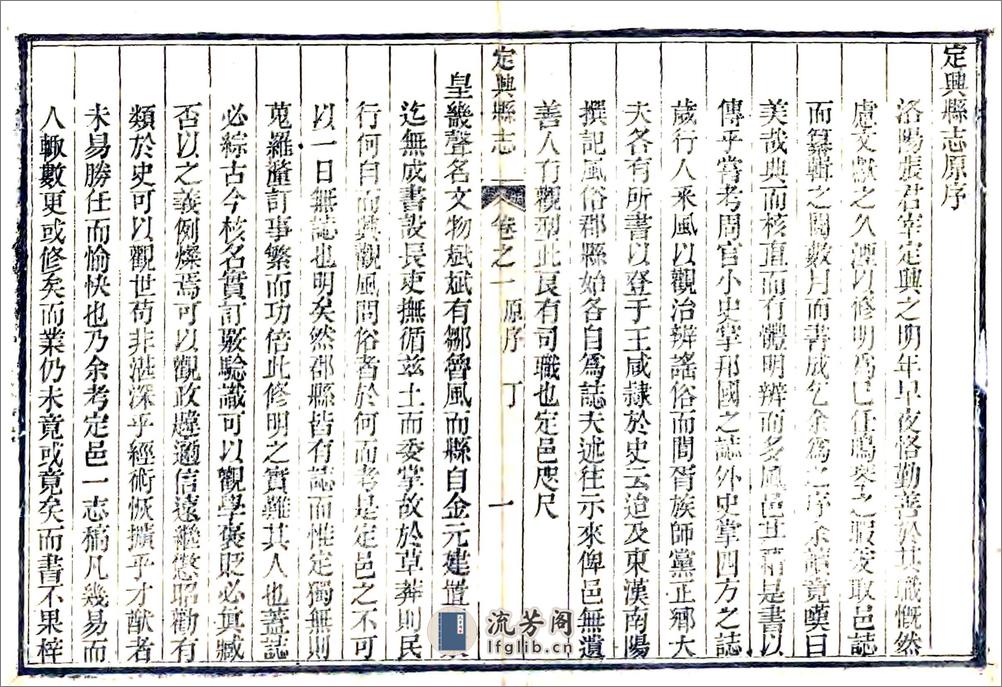 定興縣志原序
洛陽張君宰定興之明年早夜恪勤善於其職慨然
慮文獻之久湮以修明爲已任鳴琴之暇爰取邑誌
而纂輯之閱數月而書成乞余爲之序余讀竟嘆曰
美哉典而核直而有體明辨而多風邑其藉是書以
傳乎嘗考周官小史掌邦國之誌外史掌四方之誌
歲行人釆風以觀治辨謠俗而閭胥族師黨正鄉大
夫各有所書以登于王咸隷於史云迨及東漢南陽
撰記風俗郡縣始各自爲誌夫述往示來俾邑無遺
善人有觀型此良有司職也定邑咫尺
定興縣志 卷之一 原序 丁 一
皇畿聲名文物斌斌有鄒魯風而縣自金元建置
迄無成書設長吏撫循兹土而委掌故於草莽則民
行何自而興觀風問俗者於何而考是定邑之不可
以一日無誌也明矣然郡縣皆有誌而惟定獨無則
蒐羅釐訂事繁而功倍此修明之實難其人也蓋誌
必綜古今核名實訂效驗識可以觀學褒貶必眞臧
否以之義例燦焉可以觀政趨適信遠繼愸昭勸有
類於史可以觀世苟非湛深乎經術恢擴乎才猷者
未易勝任而愉快也乃余考定邑一志稿凡幾易而
人輙數更或修矣而業仍未竟或竟矣而書不果梓
流芳阁
lfglib.cn